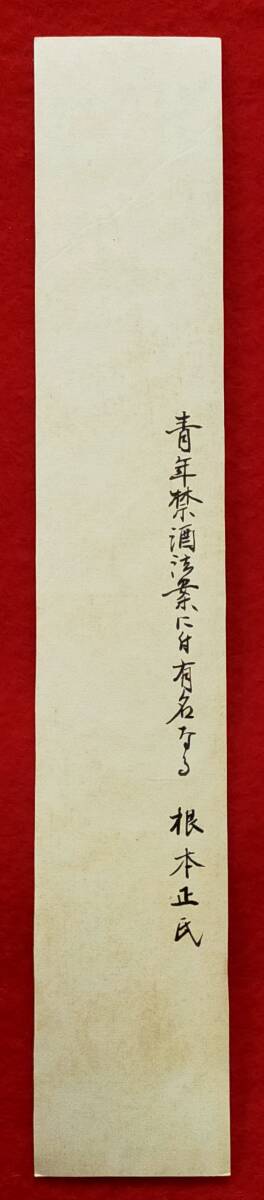 青年禁酒法案に付有名なる　根本正氏